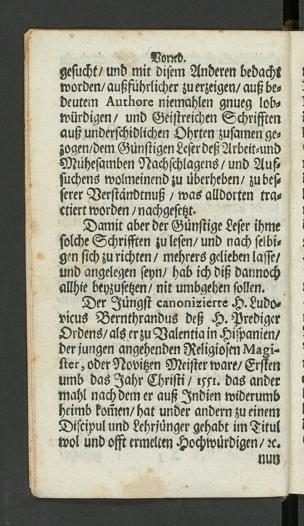 Vorred.
gesucht/ und mit disem Anderen bedacht
worden/ außführlicher zu erzeigen/ auß be-
deutem Authore niemahlen gnueg lob-
würdigen/ und Geistreichen Schrifften
auß underschidlichen Ohrten zusamen ge-
zogen/ dem Günstigen Leser deß Arbeit- und
Mühesamben Nachschlagens/ und Auf-
suchens wolmeinend zu überheben/ zu bes-
serer Verständtnuß / was alldorten tra-
ctiert worden/ nachgesetzt.
Damit aber der Günstige Leser ihme
solche Schrifften zu lesen/ und nach selbi-
gen sich zu richten/ mehrers gelieben lasse/
und angelegen seyn/ hab ich diß dannoch
allhie beyzusetzen/ nit umbgehen sollen.
Der Jüngst canonizierte H. Ludo-
vicus Bernthrandus deß H. Prediger
Ordens/ als er zu Valentia in Hispanien/
der jungen angehenden Religiosen Magi-
ster, oder Novitzen Meister ware/ Ersten
umb das Jahr Christi/ 1551. das ander
mahl nach dem er auß Indien widerumb
heimb kom̃en/ hat under andern zu einem
Discipul und Lehrjünger gehabt im Titul
wol und offt ermelten Hochwürdigen/ ꝛc.
nun